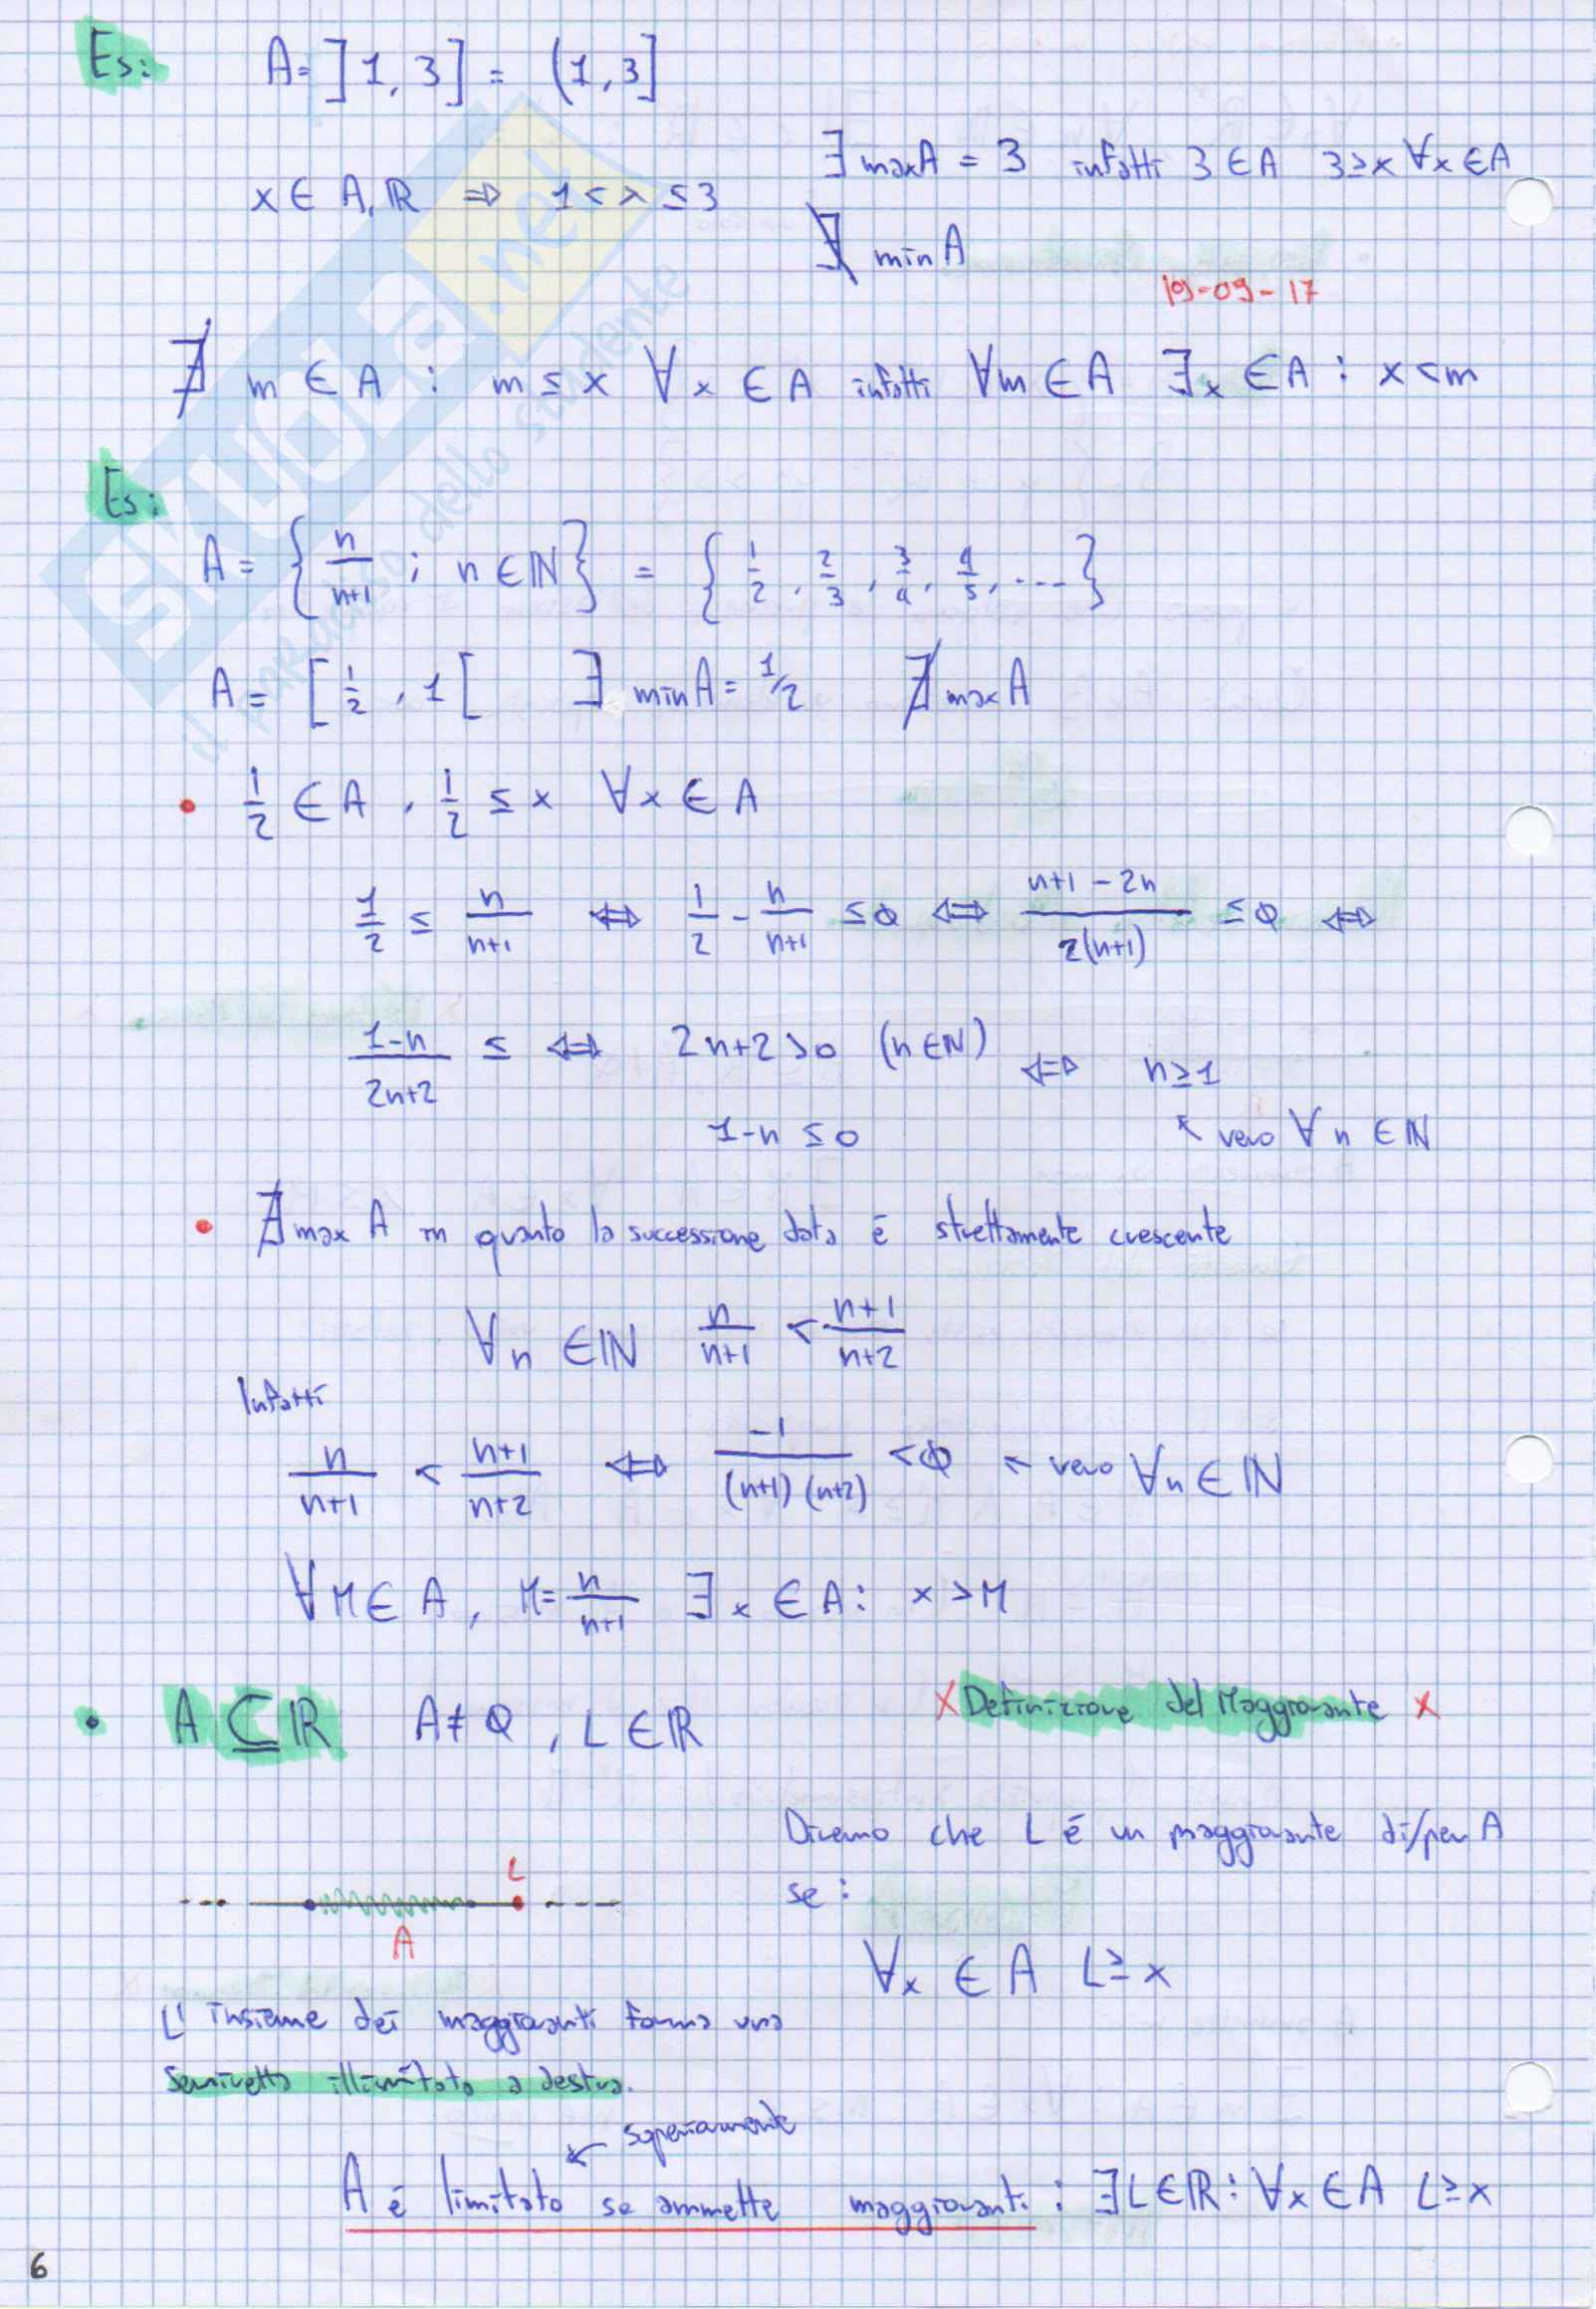 Es: A = ]1, 3] = (1, 3]
x ∈ A, ℝ ⇒ 1 < x ≤ 3
∃ maxA = 3 infatti 3 ∈ A 3 ≥ x ∀x ∈ A
∄ min A
19-09-17
∄ m ∈ A : m ≤ x ∀x ∈ A infatti ∀m ∈ A ∃x ∈ A : x < m
Es:
A = { n/(n+1) ; n ∈ ℕ } = { 1/2, 2/3, 3/4, 4/5, ... }
A = [1/2, 1[ ∃ minA = 1/2 ∄ max A
• 1/2 ∈ A, 1/2 ≤ x ∀x ∈ A
1/2 ≤ n/(n+1) ⇔ 1/2 - n/(n+1) ≤ 0 ⇔ (n+1-2n)/(2(n+1)) ≤ 0 ⇔
(1-n)/(2n+2) ≤ ⇔ 2n+2 > 0 (n ∈ ℕ) ⇔ n ≥ 1
1-n ≤ 0 ↖ vero ∀n ∈ ℕ
• ∄ max A in quanto la successione data é strettamente crescente
∀n ∈ ℕ n/(n+1) < (n+1)/(n+2)
Infatti
n/(n+1) < (n+1)/(n+2) ⇔ -1/((n+1)(n+2)) < 0 ← vero ∀n ∈ ℕ
∀M ∈ A, M = n/(n+1) ∃x ∈ A: x > M
• A ⊆ ℝ A ≠ Ø, L ∈ ℝ
X Definizione del Maggiorante X
Diremo che L é un maggiorante di/per A
se:
∀x ∈ A L ≥ x
L
A
L' insieme dei maggioranti forma una
semiretta illimitata a destra.
↙ superiormente
A é limitato se ammette maggioranti: ∃L ∈ ℝ : ∀x ∈ A L ≥ x
6
SKUOLA.net
il paradiso dello studente